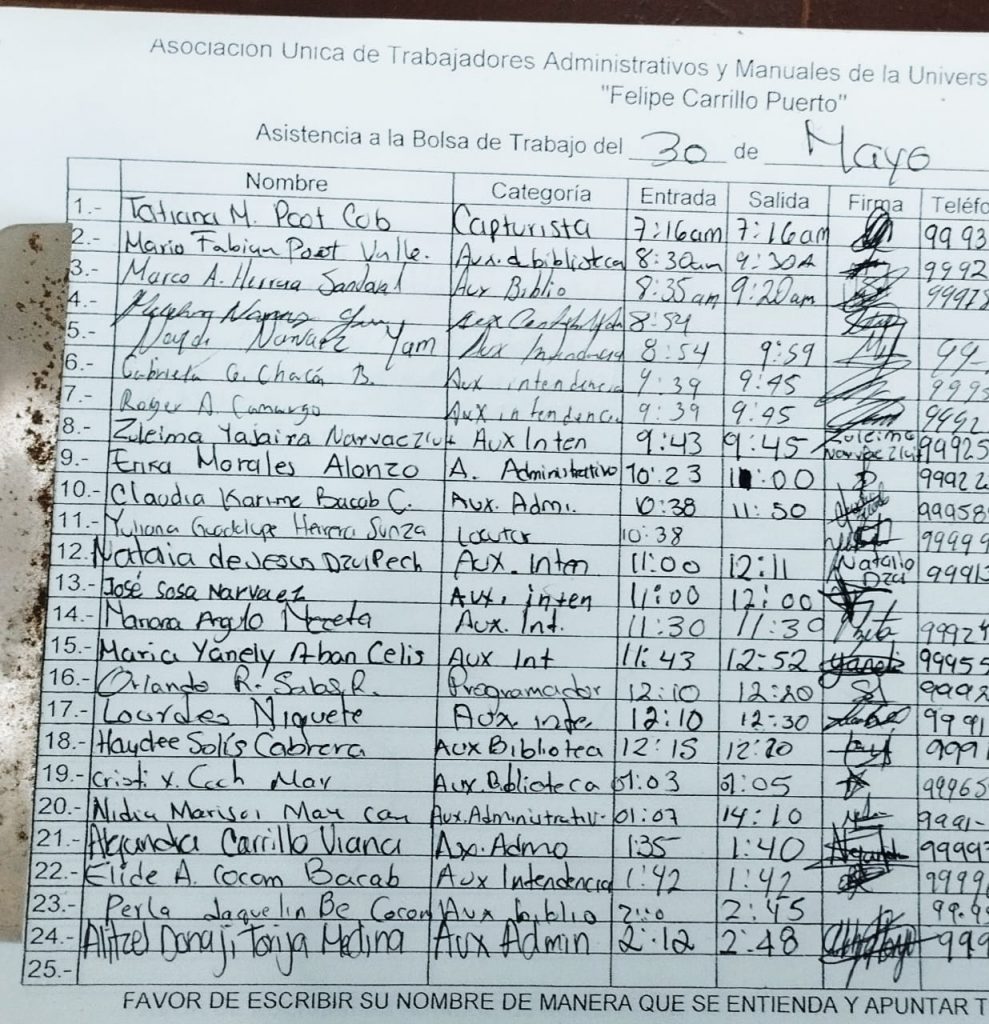 Asociación Única de Trabajadores Administrativos y Manuales de la Univers
"Felipe Carrillo Puerto"
Asistencia a la Bolsa de Trabajo del 30 de Mayo
Nombre Categoría Entrada Salida Firma Teléfo
1.- Tatiana M. Poot Cob Capturista 7:16am 7:16am 9993
2.- Mario Fabian Poot Valle. Aux. d biblioteca 8:30am 9:30A 9992
3.- Marco A. Herrera Sandoval Aux Biblio 8:35am 9:20am 99978
4.- 8:54
5.- Narvaez Yam Aux Intendencia 8:54 9:59 99-
6.- Gabriela G. Chacón B. Aux intendencia 9:39 9:45 9995
7.- Roger A. Camargo Aux intendencia 9:39 9:45 9992
8.- Zuleima Yajaira Narvaez Aux Inten 9:43 9:45 Zuleima Narvaez 99925
9.- Erika Morales Alonzo A. Administrativo 10:23 11:00 99922
10.- Claudia Karime Bacab C. Aux. Admi. 10:38 11:50 99958
11.- Yuliana Guadalupe Herrera Sunza Locutor 10:38 99999
12.- Natalia de Jesus Dzul Pech Aux. Inten 11:00 12:11 Natalia Dzul 99913
13.- José Sosa Narvaez Aux. inten 11:00 12:00
14.- Angulo Aux. Int. 11:30 11:30 99924
15.- Maria Yanely Aban Celis Aux Int 11:43 12:52 99955
16.- Orlando R. Salas R. Programador 12:10 12:20 9992
17.- Lourdes Niquete Aux. inte. 12:10 12:30 9991
18.- Haydee Solís Cabrera Aux Bibliotea 12:15 12:20 9991
19.- Cristi X. Cech Mar Aux. Biblioteca 01:03 01:05 99965
20.- Nidia Marisol May Can Aux. Administrativ. 01:07 14:10 9991-
21.- Alejandra Carrillo Viana Ax. Admo 1:35 1:40 99993
22.- Elide A. Cocom Bacab Aux Intendencia 1:42 1:42 9999
23.- Perla Jaquelin Be Cocom Aux biblio 2:10 2:45 99.9
24.- Alitzel Donaji Torija Medina Aux Admin 2:12 2:48 999
25.-
FAVOR DE ESCRIBIR SU NOMBRE DE MANERA QUE SE ENTIENDA Y APUNTAR T